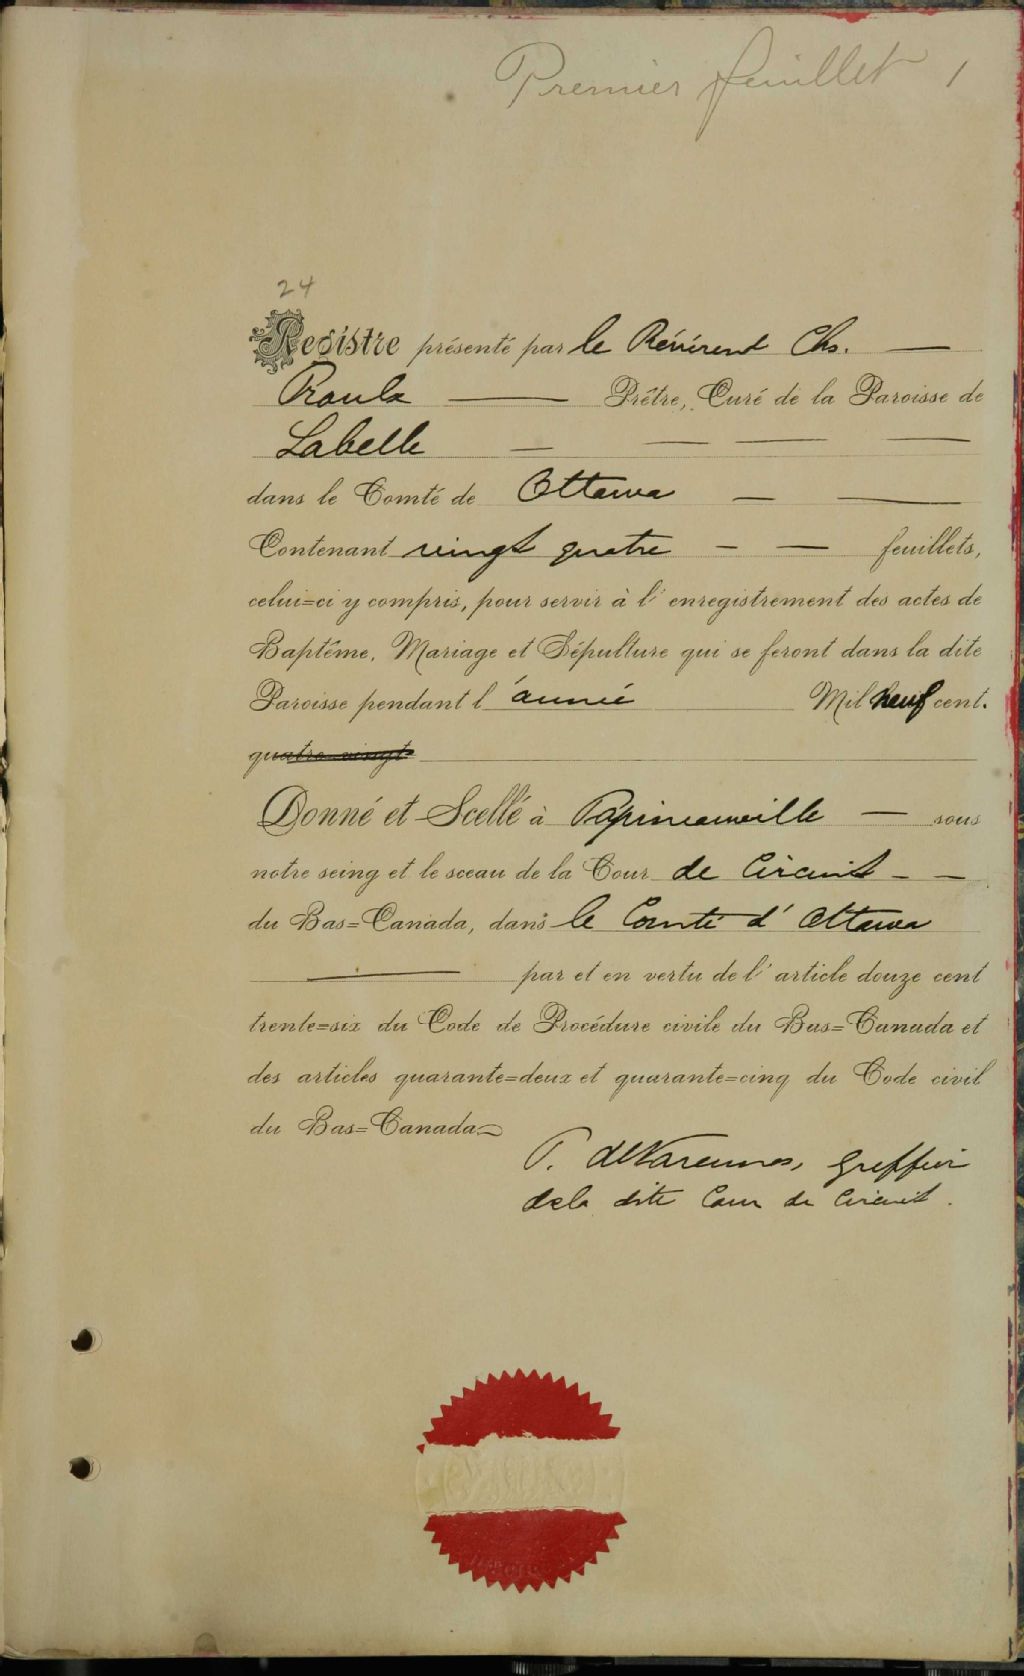 Premier feuillet 1
24
Registre présenté par le Révérent Chs.
Proulx Prêtre, Curé de la Paroisse de
Labelle
dans le Comté de Ottawa
Contenant vingt quatre feuillets,
celui=ci y compris, pour servir à l'enregistrement des actes de
Baptême, Mariage et Sépulture qui se feront dans la dite
Paroisse pendant l'année Mil neuf cent.
quatre-vingt
Donné et Scellé à Papineauville sous
notre seing et le sceau de la Cour de Circuit
du Bas=Canada, dans le Comté d'Ottawa
par et en vertu de l'article douze cent
trente=six du Code de Procédure civile du Bas=Canada et
des articles quarante=deux et quarante=cinq du Code civil
du Bas=Canada
P. deVarennes, Greffier
de la dite Cour de Circuit.